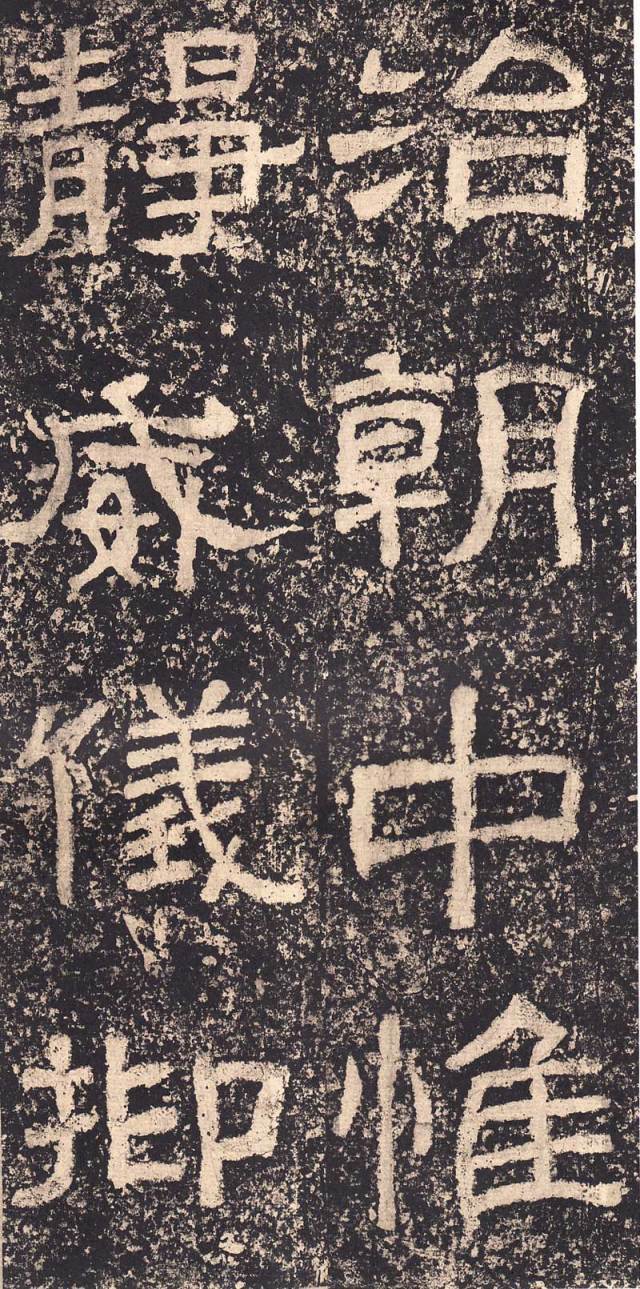 治朝中惟
靜威儀抑